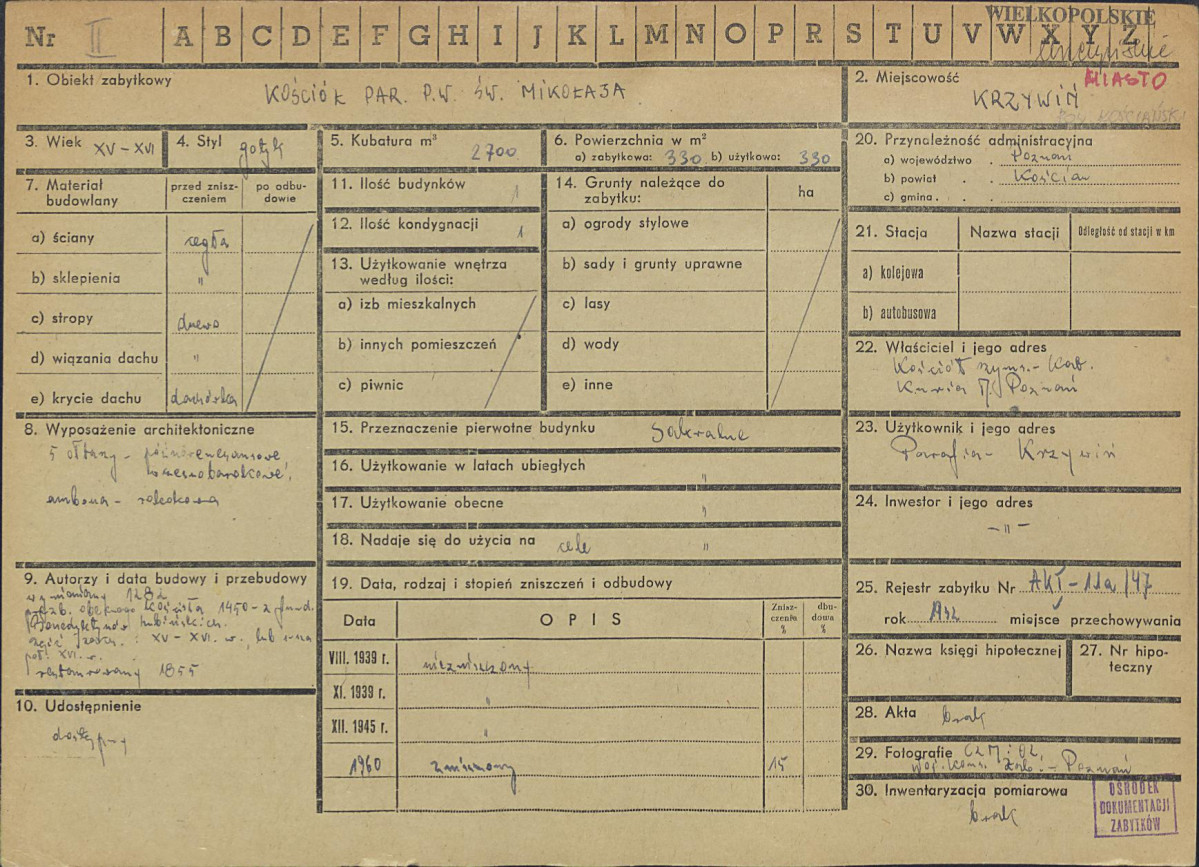 WIELKOPOLSKIE
Nr II A B C D E F G H I J K L M N O P R S T U V W X Y Z
1. Obiekt zabytkowy
KOŚCIÓŁ PAR. P.W. ŚW. MIKOŁAJA
2. Miejscowość
MIASTO
KRZYWIŃ
POW. KOŚCIAŃSKI
3. Wiek XV - XVI
4. Styl gotyk
5. Kubatura m³ 2700
6. Powierzchnia w m²
a) zabytkowa: 330 b) użytkowa: 330
7. Materiał budowlany
przed znisz-
czeniem
po odbu-
dowie
a) ściany cegła
b) sklepienia "
c) stropy drewno
d) wiązania dachu "
e) krycie dachu dachówka
8. Wyposażenie architektoniczne
5 ołtarzy - późnorenesansowe
wczesnobarokowe,
ambona - rokokowa
9. Autorzy i data budowy i przebudowy
wzmiankowany 1282
obecnego kościoła 1450 - z fund.
Benedyktynów lubińskich.
część XV - XVI. w. lub I-sza
poł. XVI. w.
restaurowany 1855
10. Udostępnienie
dostępny
11. Ilość budynków 1
12. Ilość kondygnacji 1
13. Użytkowanie wnętrza
według ilości:
a) izb mieszkalnych
b) innych pomieszczeń
c) piwnic
14. Grunty należące do
zabytku:
ha
a) ogrody stylowe
b) sady i grunty uprawne
c) lasy
d) wody
e) inne
15. Przeznaczenie pierwotne budynku Sakralne
16. Użytkowanie w latach ubiegłych "
17. Użytkowanie obecne "
18. Nadaje się do użycia na cele "
19. Data, rodzaj i stopień zniszczeń i odbudowy
Data
OPIS
Znisz-
czenia
%
dbu-
dowa
%
VIII. 1939 r. niezniszczony
XI. 1939 r. "
XII. 1945 r. "
1960 zniszczony 15
20. Przynależność administracyjna
a) województwo . Poznań
b) powiat . . Kościan
c) gmina . . .
21. Stacja
Nazwa stacji
Odległość od stacji w km
a) kolejowa
b) autobusowa
22. Właściciel i jego adres
Kościół rzyms.- Kat.
Kuria M. Poznań
23. Użytkownik i jego adres
Parafia - Krzywiń
24. Inwestor i jego adres
- " -
25. Rejestr zabytku Nr AKŁ-11a/47
rok 1932 miejsce przechowywania
26. Nazwa księgi hipotecznej
27. Nr hipo-
teczny
28. Akta brak
29. Fotografie CZM i OZ,
Woj. Kons. Zab. - Poznań
30. Inwentaryzacja pomiarowa
brak
OŚRODEK
DOKUMENTACJI
ZABYTKÓW